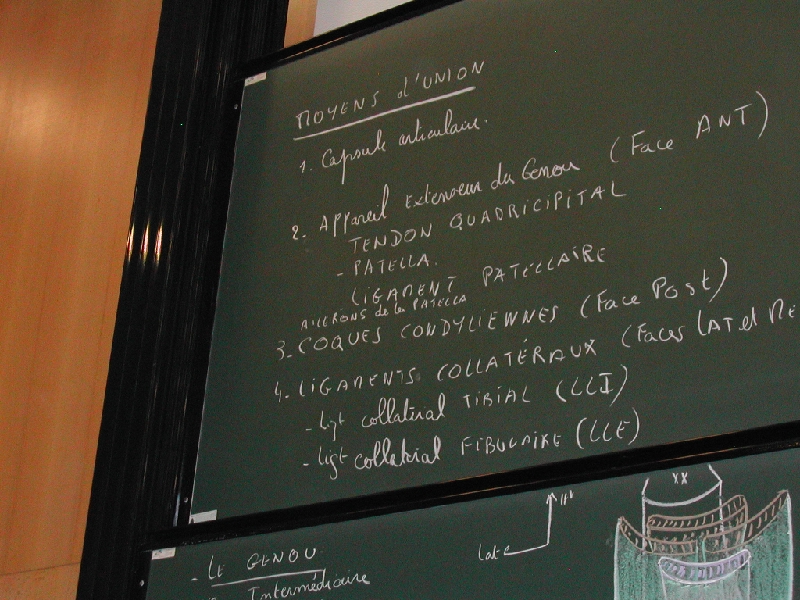 MOYENS d'UNION
1. Capsule articulaire.
2. Appareil Extenseur du Genou (Face ANT)
TENDON QUADRICIPITAL
- PATELLA.
LIGAMENT PATELLAIRE
AILERONS de la PATELLA
3. COQUES CONDYLIENNES (Face Post)
4. LIGAMENTS COLLATÉRAUX (Faces LAT et Me
- ligt collatéral TIBIAL (LLI)
- ligt collatéral FIBULAIRE (LLE)
- LE GENOU
Intermédiaire
Lat
xx